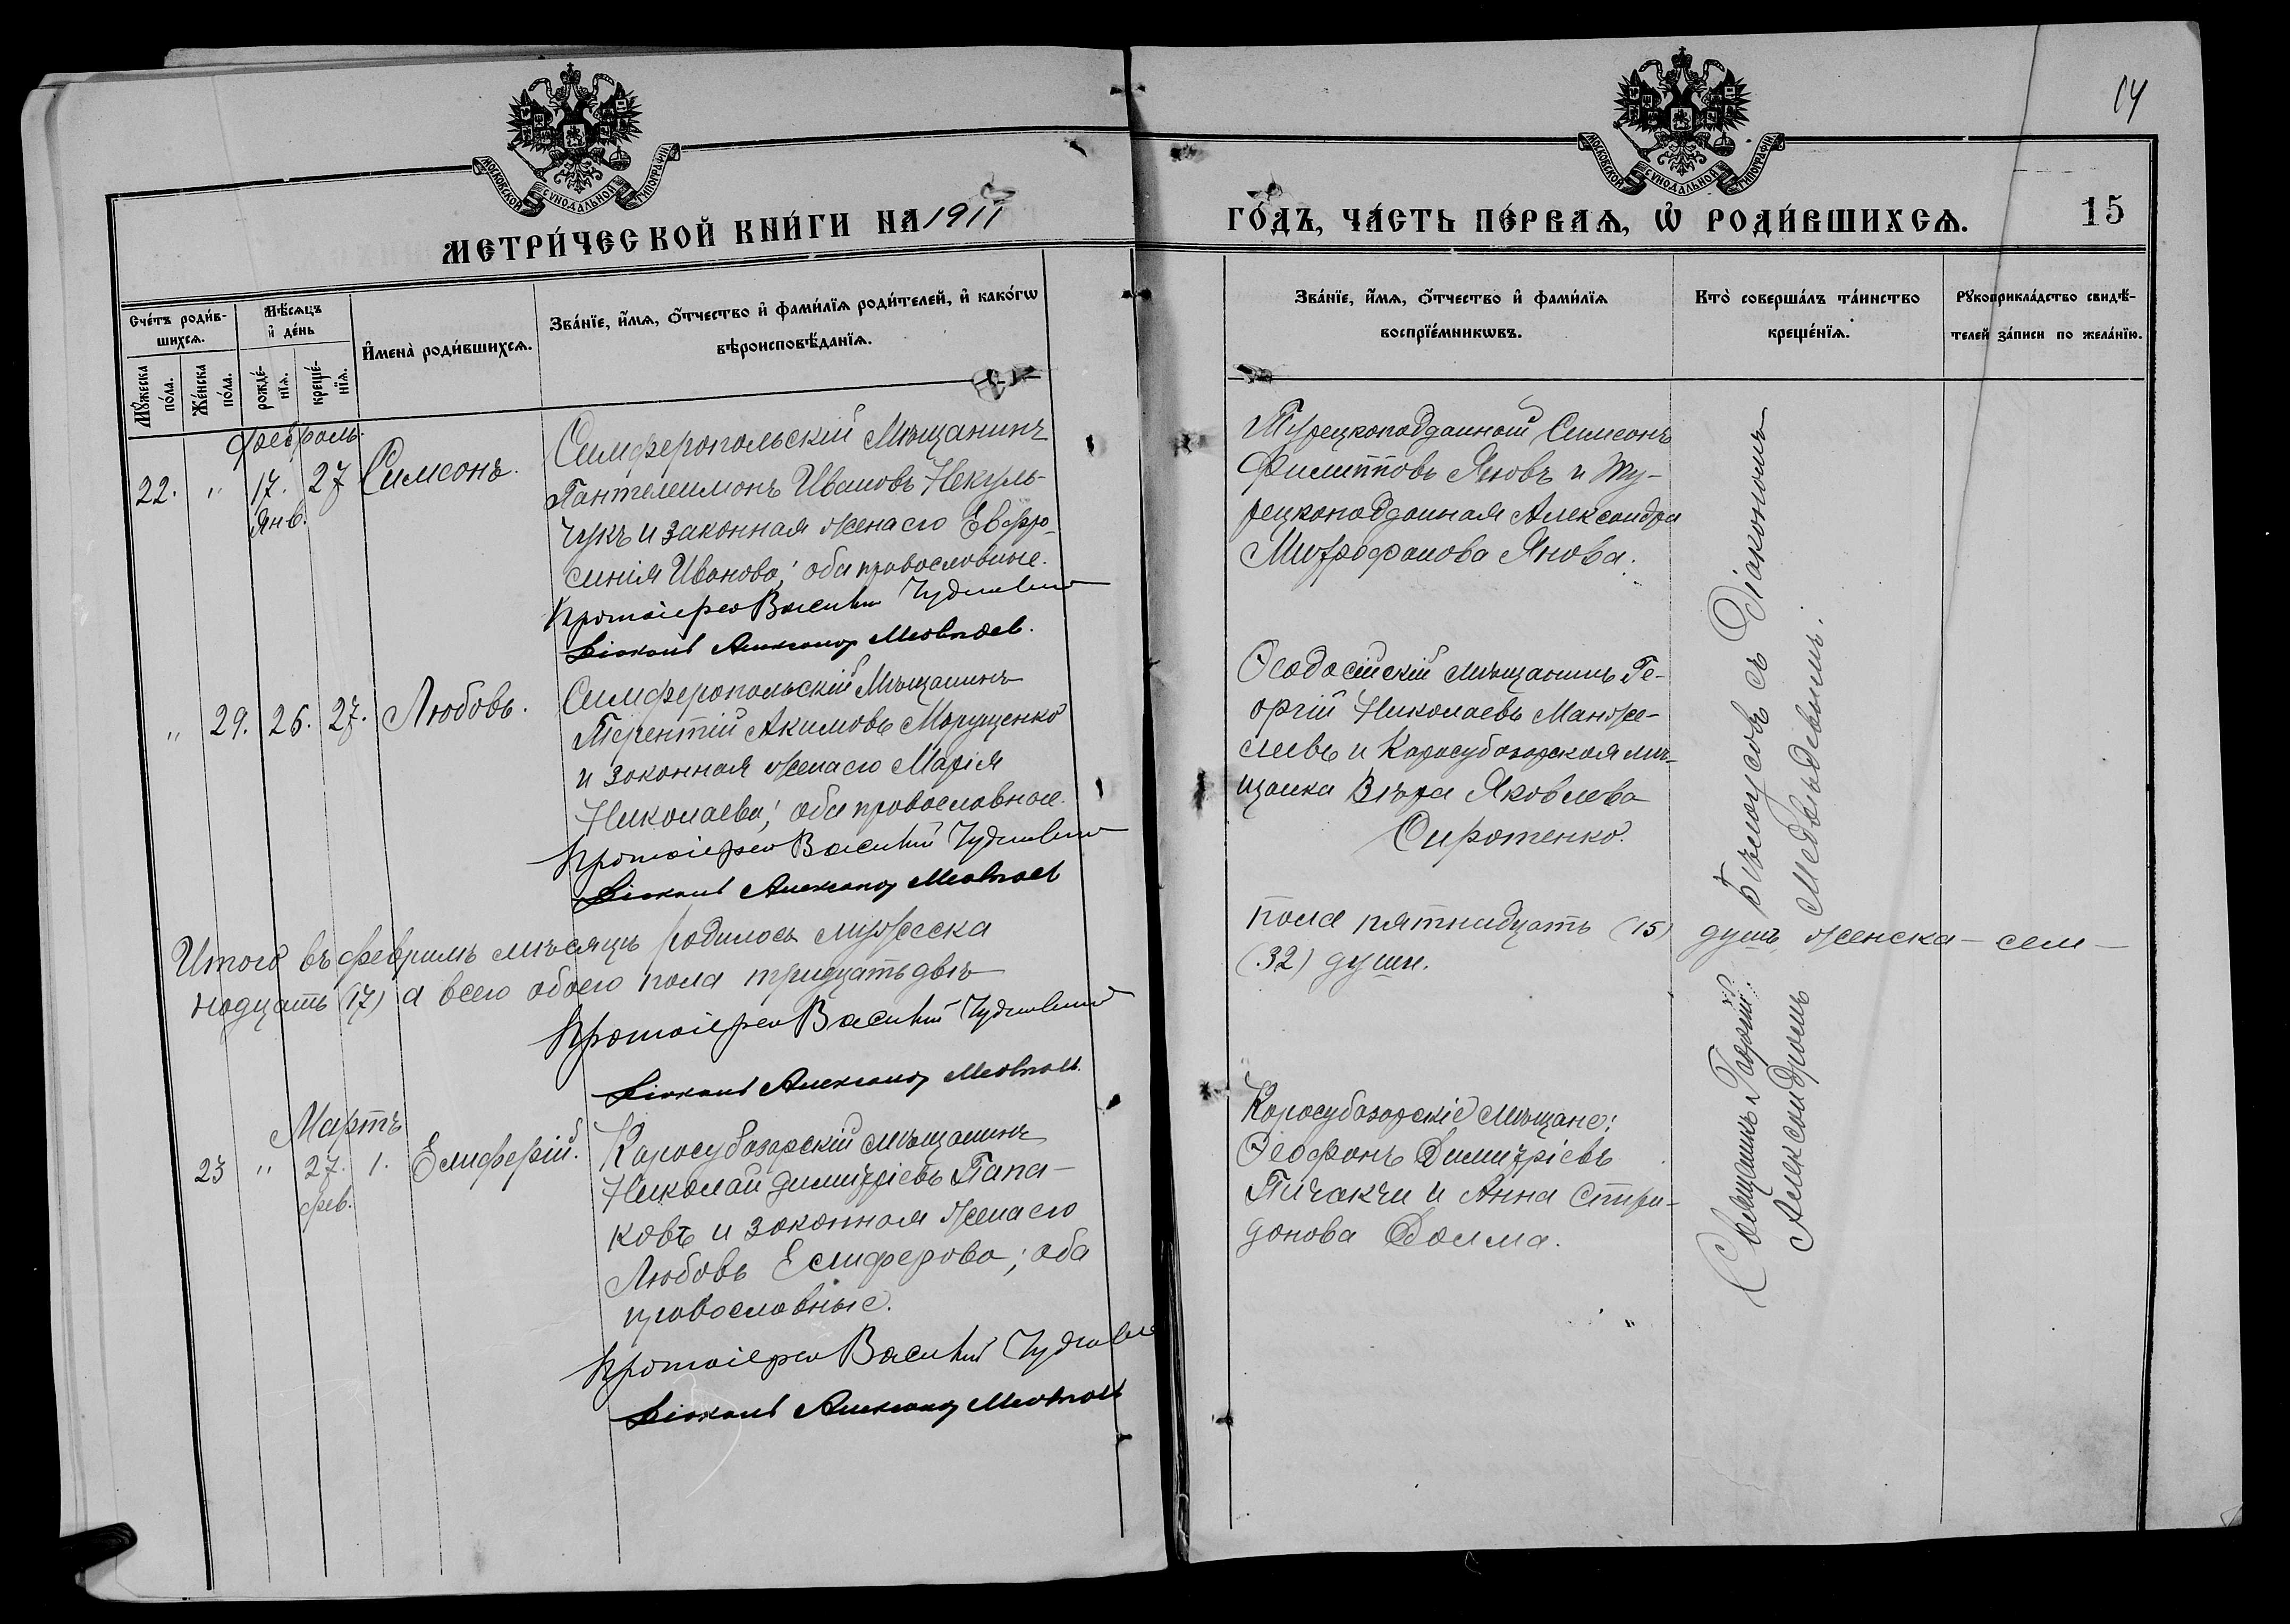 14
МОСКОВСКОЙ СѴНОДАЛЬНОЙ ТИПОГРАФІИ
МОСКОВСКОЙ СѴНОДАЛЬНОЙ ТИПОГРАФІИ
МЕТРИ́ЧЕСКОЙ КНИ́ГИ НА 1911
ГО́ДЪ, ЧА́СТЬ ПЕ́РВАѦ, Ѡ҆ РОДИ́ВШИХСѦ.
15
Сче́тъ роди́в-
шихсѧ.
Мꙋ́жеска
по́ла.
Же́нска
по́ла.
Мѣ́сѧцъ
и҆ де́нь
рожде́-
нїѧ.
креще́-
нїѧ.
И҆мена̀ роди́вшихсѧ.
Зва́нїе, и҆́мѧ, ѻ҆́тчество и҆ фами́лїѧ роди́телей, и҆ како́гѡ
вѣроисповѣ́данїѧ.
Зва́нїе, и҆́мѧ, ѻ҆́тчество и҆ фами́лїѧ
воспрїе́мникѡвъ.
Кто̀ соверша́лъ та́инство
креще́нїѧ.
Рꙋкоприкла́дство свидѣ́-
телей за́писи по жела́нїю.
Февраль.
22. " 17. 27 Симеонъ.
Янв.
Симферопольскій Мѣщанинъ
Пантелеимонъ Ивановъ Некуль-
чукъ и законная жена его Евфро-
синія Иванова; оба православные.
Протоіерей Василій
Діаконъ Александръ Медвѣдевъ.
Турецкоподданный Симеонъ
Филипповъ Яновъ и Ту-
рецкоподданная Александра
Митрофанова Янова.
" 29. 26. 27. Любовь.
Симферопольскій Мѣщанинъ
Терентій Акимовъ Марущенко
и законная жена его Марія
Николаева; оба православные.
Протоіерей Василій
Діаконъ Александръ Медвѣдевъ
Ѳеодосійскій мѣщанинъ Ге-
оргій Николаевъ Манже-
леевъ и Карасубазарская мѣ-
щанка Вѣра Яковлева
Сиротенко.
Итого въ февралѣ мѣсяцѣ родилось мужеска
пола пятнадцать (15) душъ, женска - сем-
надцать (17) а всего обоего пола тридцать двѣ
(32) души.
Протоіерей Василій
Діаконъ Александръ Медвѣдевъ.
Мартъ
23 " 27. 1. Елиферій.
фев.
Карасубазарскій мѣщанинъ
Николай Димитріевъ Папа-
ковъ и законная жена его
Любовь Елиферова; оба
православные.
Протоіерей Василій
Діаконъ Александръ Медвѣдевъ
Карасубазарскіе мѣщане:
Ѳеофанъ Димитріевъ
Пичакчи и Анна Спири-
донова Долма.
Священникъ Георгій Бѣлоусовъ съ Діакономъ
Александромъ Медвѣдевымъ.